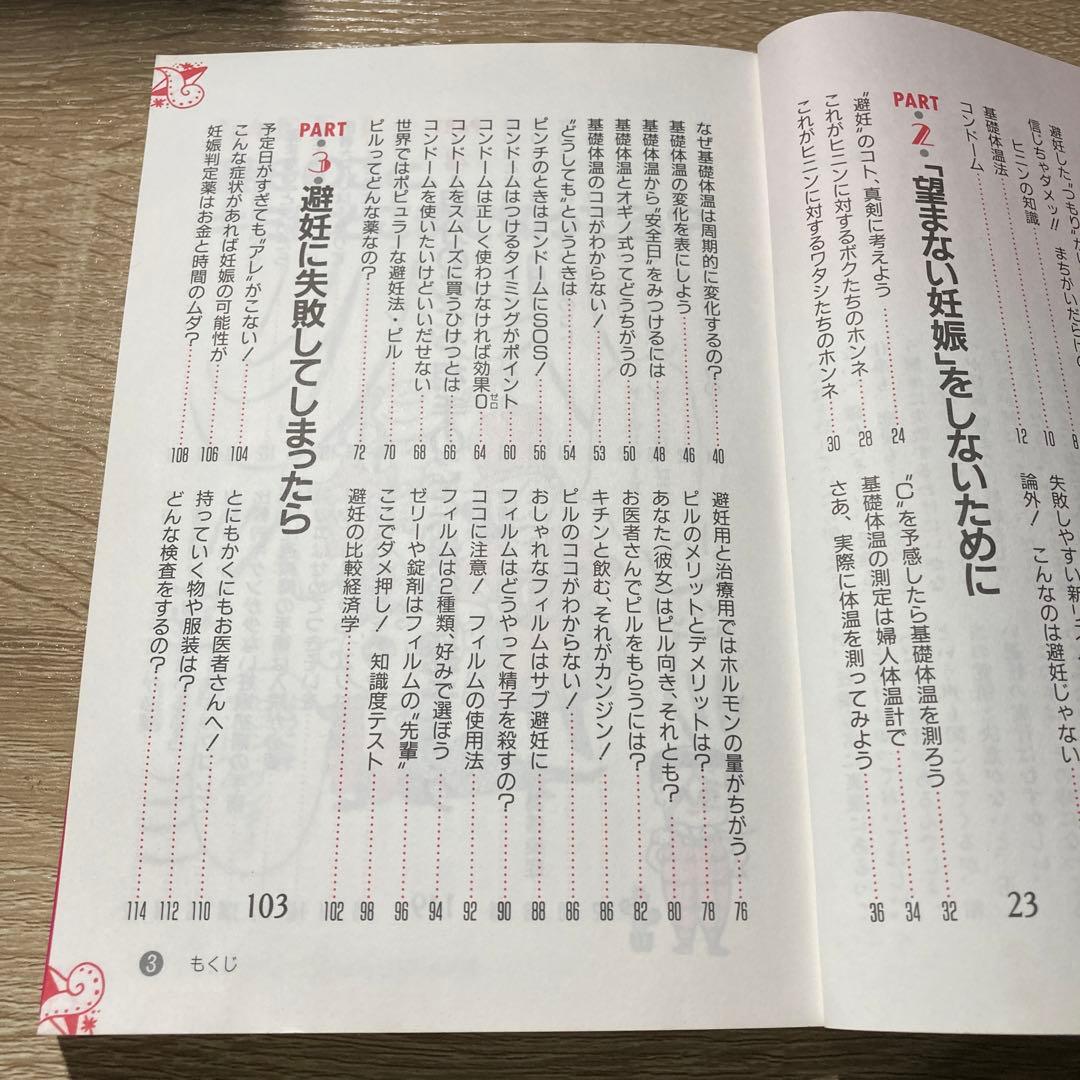 避妊した"つもり"が
信じちゃダメッ!! まちがいだらけの
ヒニンの知識
基礎体温法
コンドーム
8
10
12
失敗しやすい新
論外! こんなのは避妊じゃない
PART・2・「望まない妊娠」をしないために
23
"避妊"のコト、真剣に考えよう 24
これがヒニンに対するボクたちのホンネ 28
これがヒニンに対するワタシたちのホンネ 30
"C"を予感したら基礎体温を測ろう 32
基礎体温の測定は婦人体温計で 34
さあ、実際に体温を測ってみよう 36
なぜ基礎体温は周期的に変化するの? 40
基礎体温の変化を表にしよう 46
基礎体温から"安全日"をみつけるには 48
基礎体温とオギノ式ってどうちがうの 50
基礎体温のココがわからない! 53
"どうしても"というときは 54
ピンチのときはコンドームにSOS! 56
コンドームはつけるタイミングがポイント 60
コンドームは正しく使わけなければ効果0ゼロ 64
コンドームをスムーズに買うひけつとは 66
コンドームを使いたいけどいいだせない 68
世界ではポピュラーな避妊法・ピル 70
ピルってどんな薬なの? 72
避妊用と治療用ではホルモンの量がちがう 76
ピルのメリットとデメリットは? 78
あなた(彼女)はピル向き、それとも? 80
お医者さんでピルをもらうには? 82
キチンと飲む、それがカンジン! 86
ピルのココがわからない! 86
おしゃれなフィルムはサブ避妊に 88
フィルムはどうやって精子を殺すの? 90
ココに注意! フィルムの使用法 92
フィルムは2種類、好みで選ぼう 94
ゼリーや錠剤はフィルムの"先輩" 96
ここでダメ押し! 知識度テスト 98
避妊の比較経済学 102
PART・3・避妊に失敗してしまったら
103
予定日がすぎても"アレ"がこない! 104
こんな症状があれば妊娠の可能性が 106
妊娠判定薬はお金と時間のムダ? 108
とにもかくにもお医者さんへ! 110
持っていく物や服装は? 112
どんな検査をするの? 114
3 もくじ